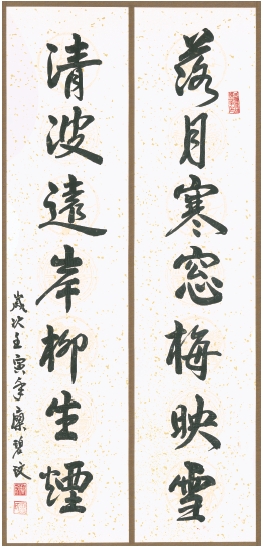 落月寒窓梅映雪
清波遠岸柳生煙
歲次壬寅年廖碧玟